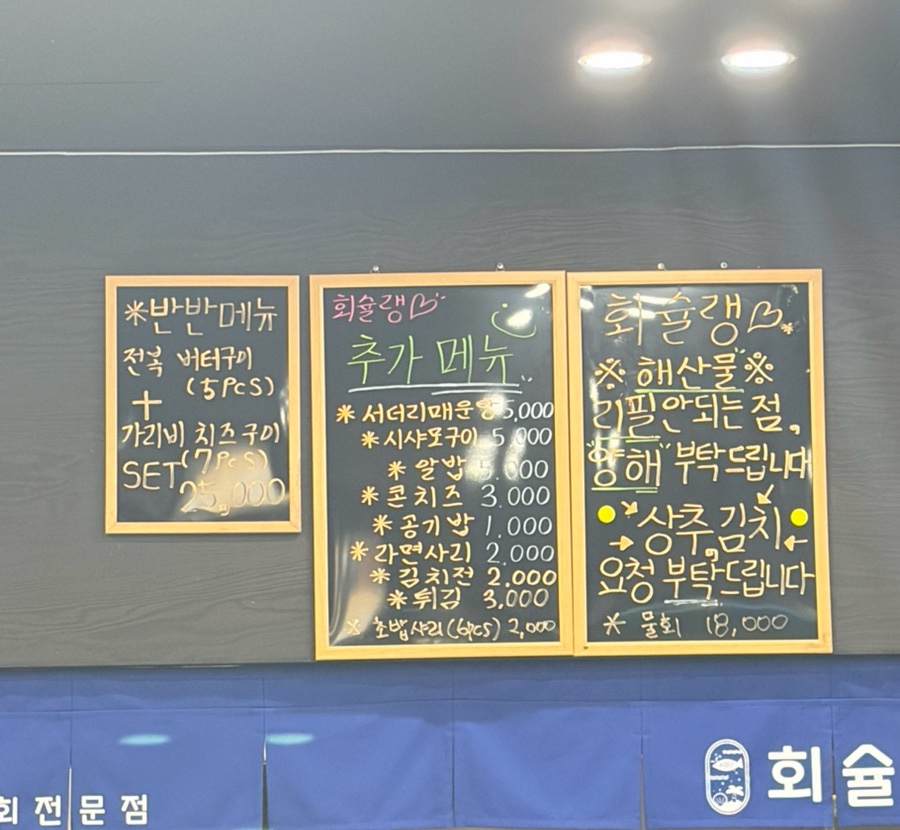 *반반메뉴
전복 버터구이
(5PCS)
+
가리비 치즈구이
(7PCS)
SET
25,000
회슐랭
추가 메뉴
* 서더리매운탕 5,000
* 시샤모구이 5,000
* 알밥 5,000
* 콘치즈 3,000
* 공기밥 1,000
* 라면사리 2,000
* 김치전 2,000
* 튀김 3,000
※ 초밥샤리(6pcs) 2,000
회슐랭
※ 해산물 ※
리필안되는점,
"양해" 부탁드립니다
상추,김치
요청 부탁드립니다
* 물회 18,000
회전문점
회슐